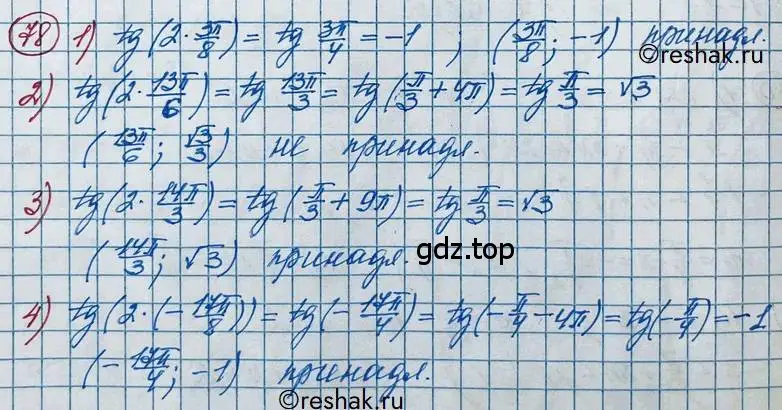 78 1) tg(2·3π/8) = tg 3π/4 = -1 ; (3π/8; -1) принадл.
2) tg(2·13π/6) = tg 13π/3 = tg(π/3 + 4π) = tg π/3 = √3
(13π/6; √3/3) не принадл.
3) tg(2·14π/3) = tg(π/3 + 9π) = tg π/3 = √3
(14π/3; √3) принадл.
gdz.top
4) tg(2·(-17π/8)) = tg(-17π/4) = tg(-π/4 - 4π) = tg(-π/4) = -1
(-17π/4; -1) принадл.
©reshak.ru
©reshak.ru